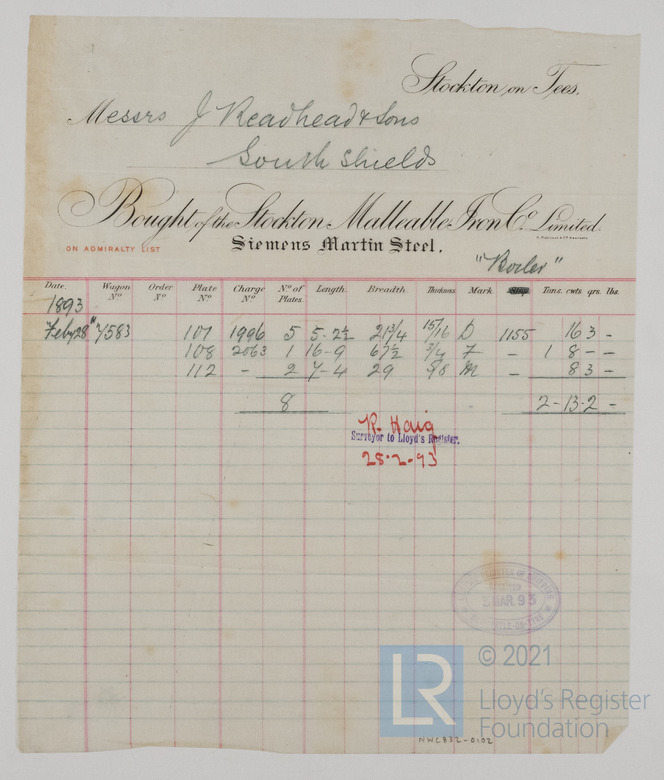 Stockton on Tees.
Messrs J Readhead & Sons
South Shields
Bought of the Stockton Malleable Iron Co. Limited.
ON ADMIRALTY LIST
Siemens Martin Steel.
"Boiler"
Date. Wagon No. Order No. Plate No. Charge No. No. of Plates. Length. Breadth. Thickness. Mark. Tons. cwts. qrs. lbs.
1893
Feby 28" 7583 107 1996 5 5-2½ 21¾ 15/16 D 1155 16 3 -
108 2063 1 16-9 67½ ¾ F - 1 8 - -
112 - 2 7-4 29 M - 8 3 -
8 2-13-2 -
R. Haig
Surveyor to Lloyd's Register.
28-2-93
MAR. 93
LR © 2021
Lloyd's Register
Foundation
NWC832-0102